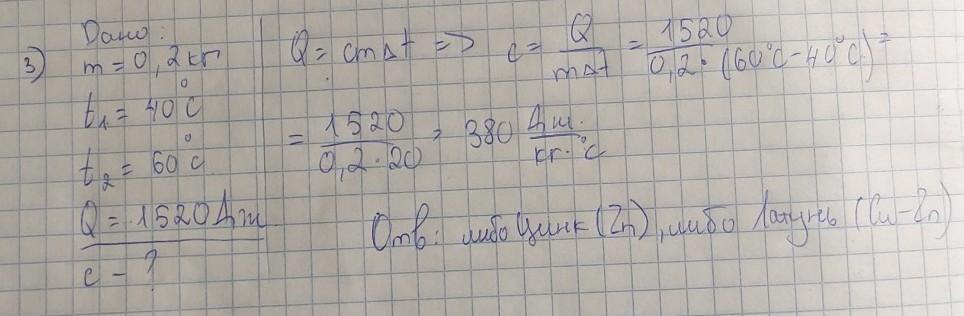 3)
Дано:
m = 0,2 кг
t₁ = 40°C
t₂ = 60°C
Q = 1520 Дж
c - ?
Q = cmΔt => c = Q/(mΔt) = 1520/(0,2 · (60°C - 40°C)) =
= 1520/(0,2 · 20) = 380 Дж/(кг·°C)
Отв: либо Цинк (Zn), либо Латунь (Cu-Zn)